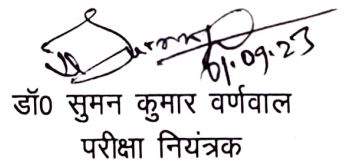 01.09.23
डॉ0 सुमन कुमार वर्णवाल
परीक्षा नियंत्रक